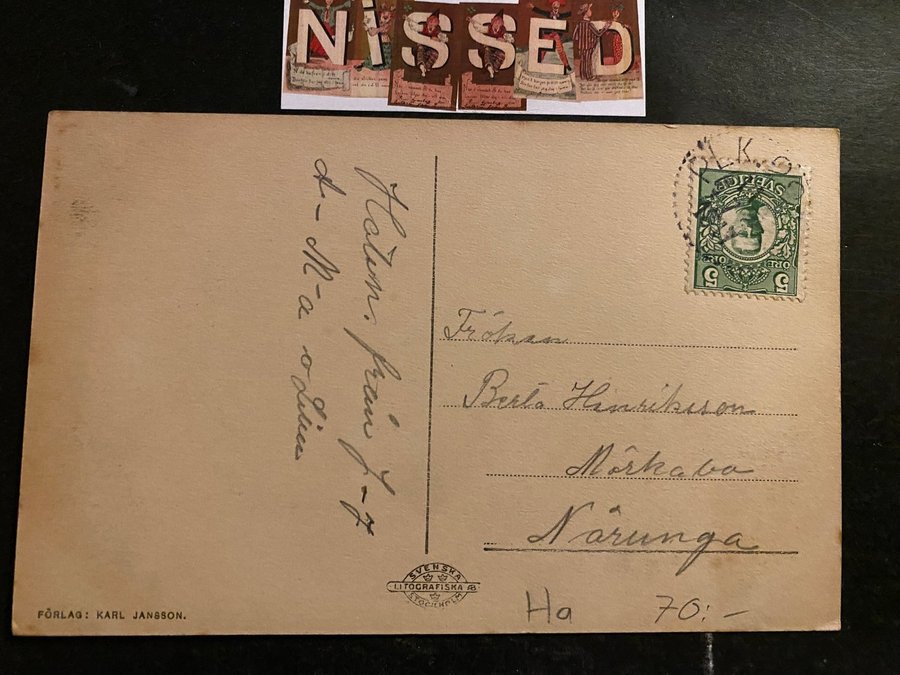 NISSED
SVERIGE
5 ÖRE ÖRE 5
Fröken
Berta Henriksson
Mörkabo
Nårunga
från J-J
A-M-a o
SVENSKA
LITOGRAFISKA AB
STOCKHOLM
FÖRLAG: KARL JANSSON.
Ha 70:-